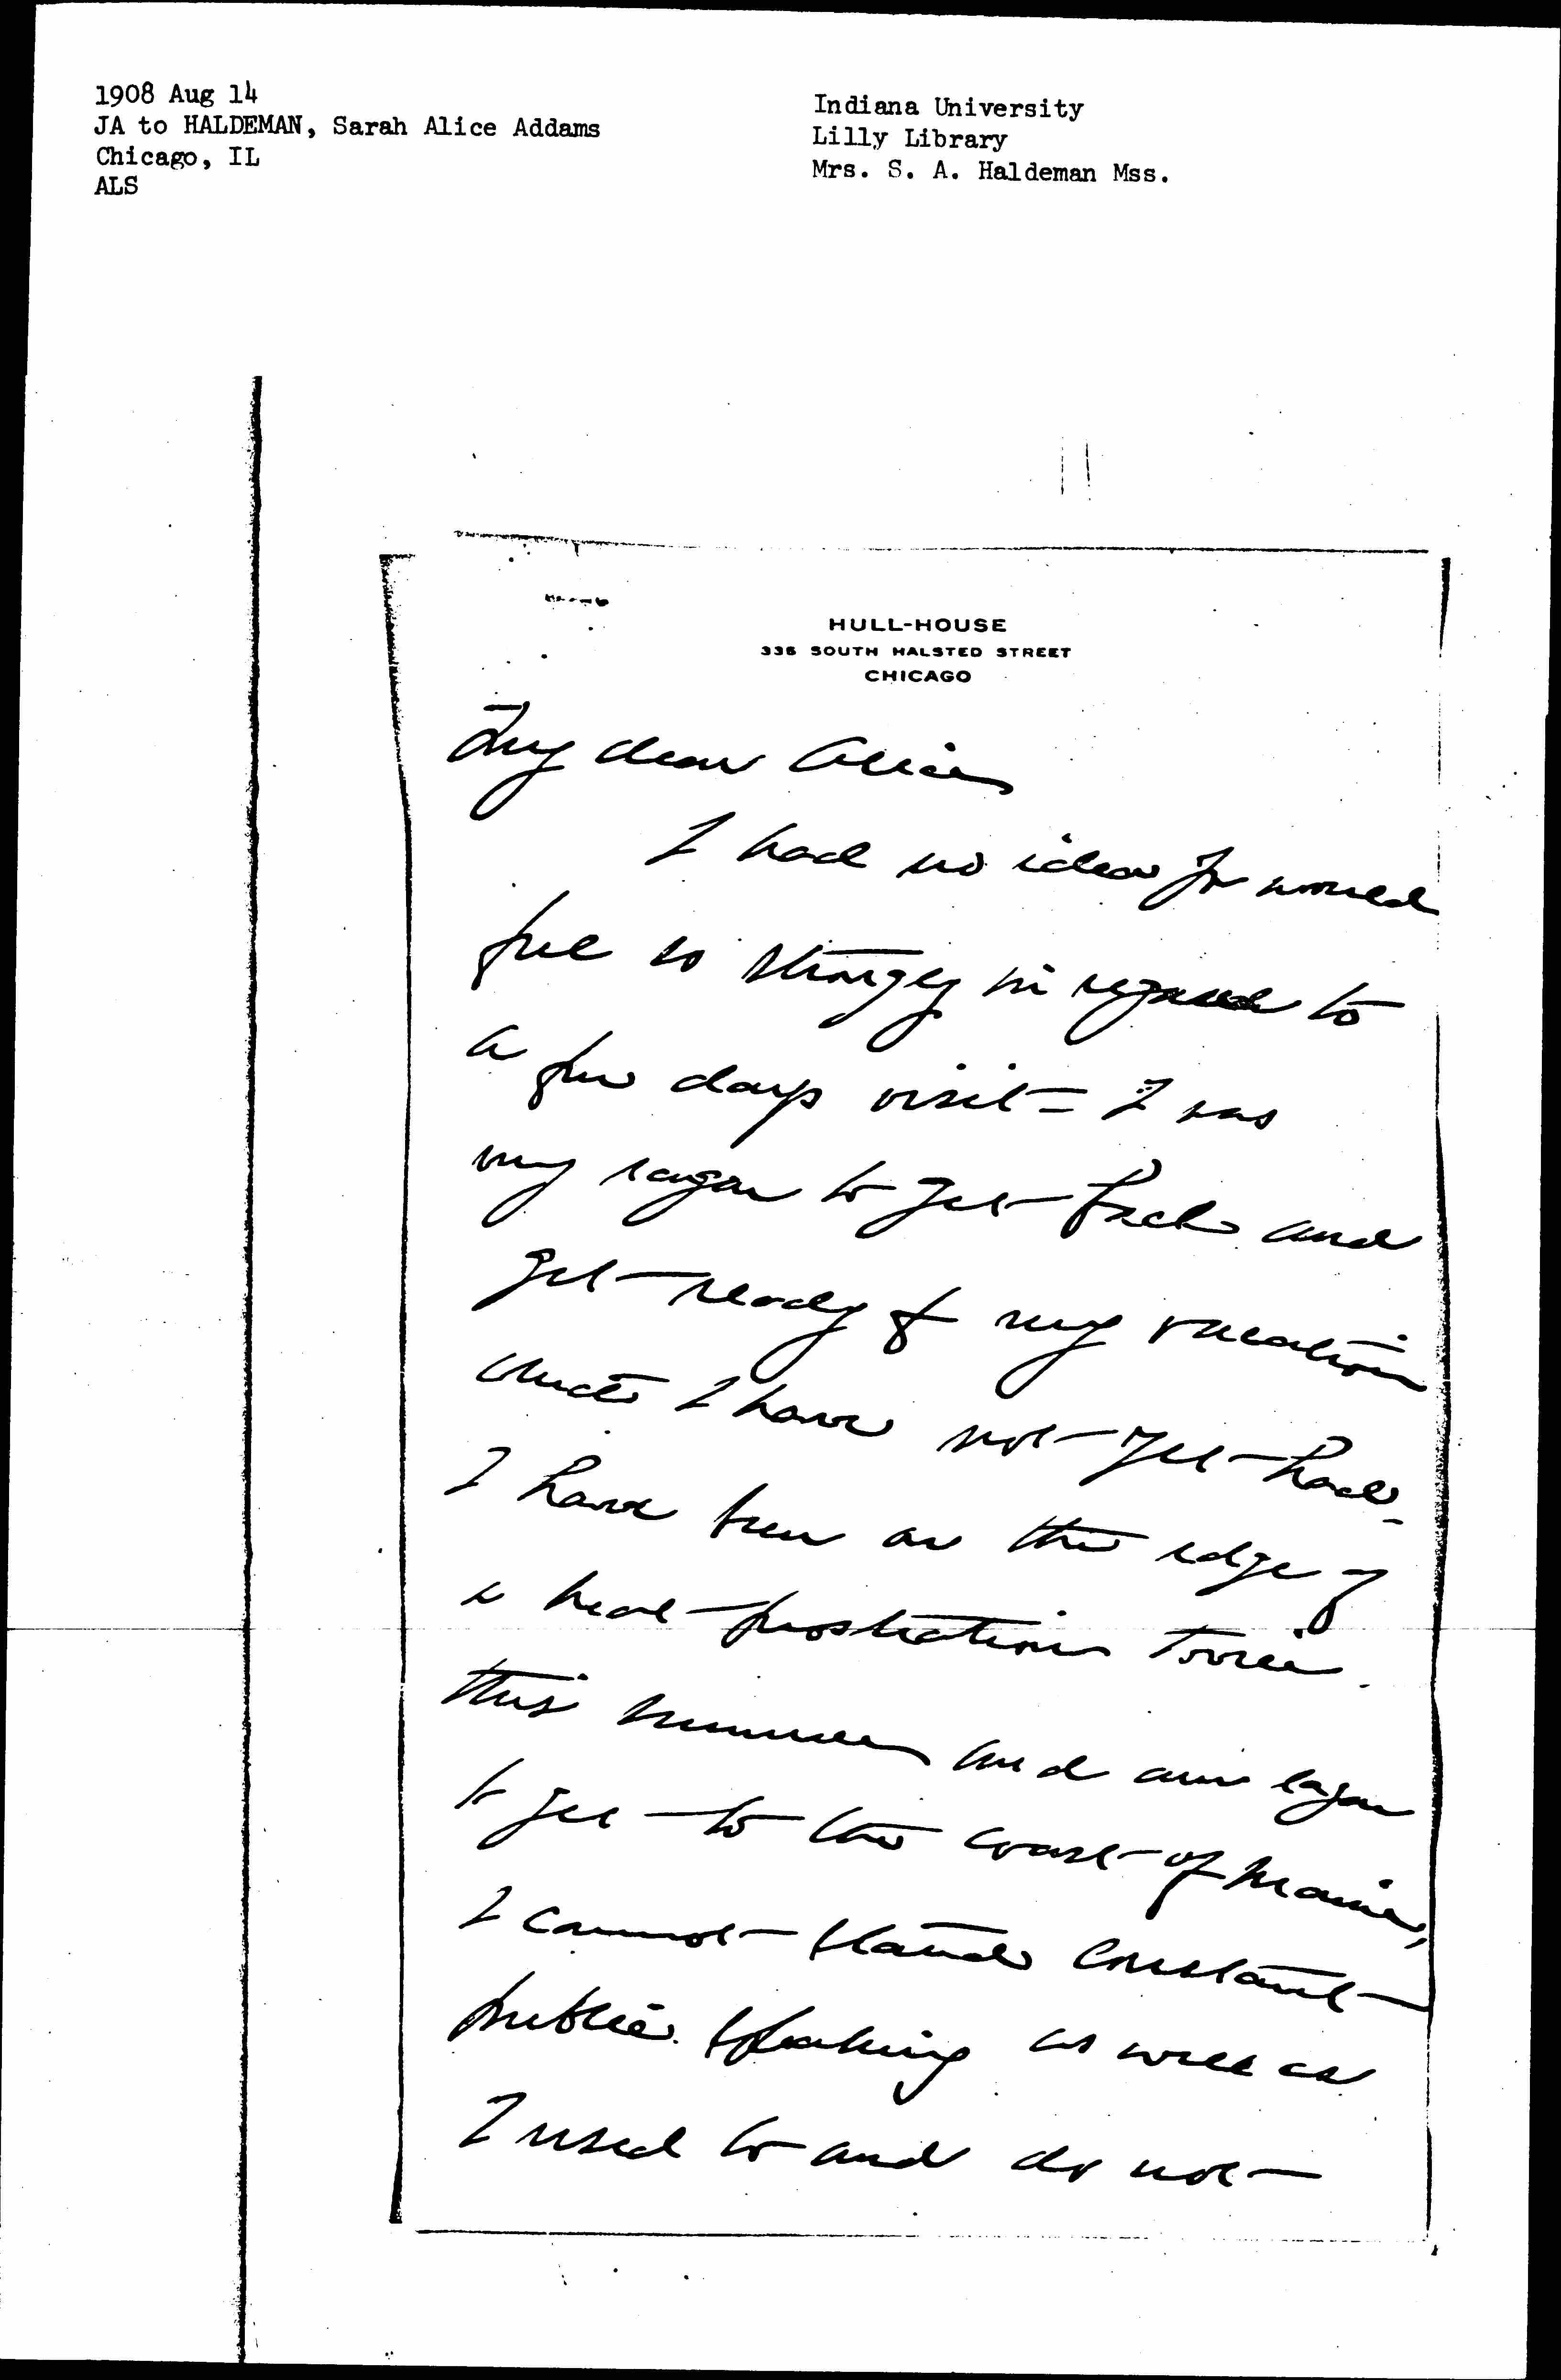 1908 Aug 14
JA to HALDEMAN, Sarah Alice Addams
Chicago, IL
ALS
Indiana University
Lilly Library
Mrs. S. A. Haldeman Mss.
HULL-HOUSE
335 SOUTH HALSTED STREET
CHICAGO
My dear Alice
I had no idea you would
feel so strongly in regard to
a few days visit = I was
very eager to get back and
get ready for my vacation
which I have not yet had -
I have been on the edge of
a heat prostration twice
this summer and am eager
to get to the coast of Maine,
I cannot stand constant
public speaking as well as
I used to and do not